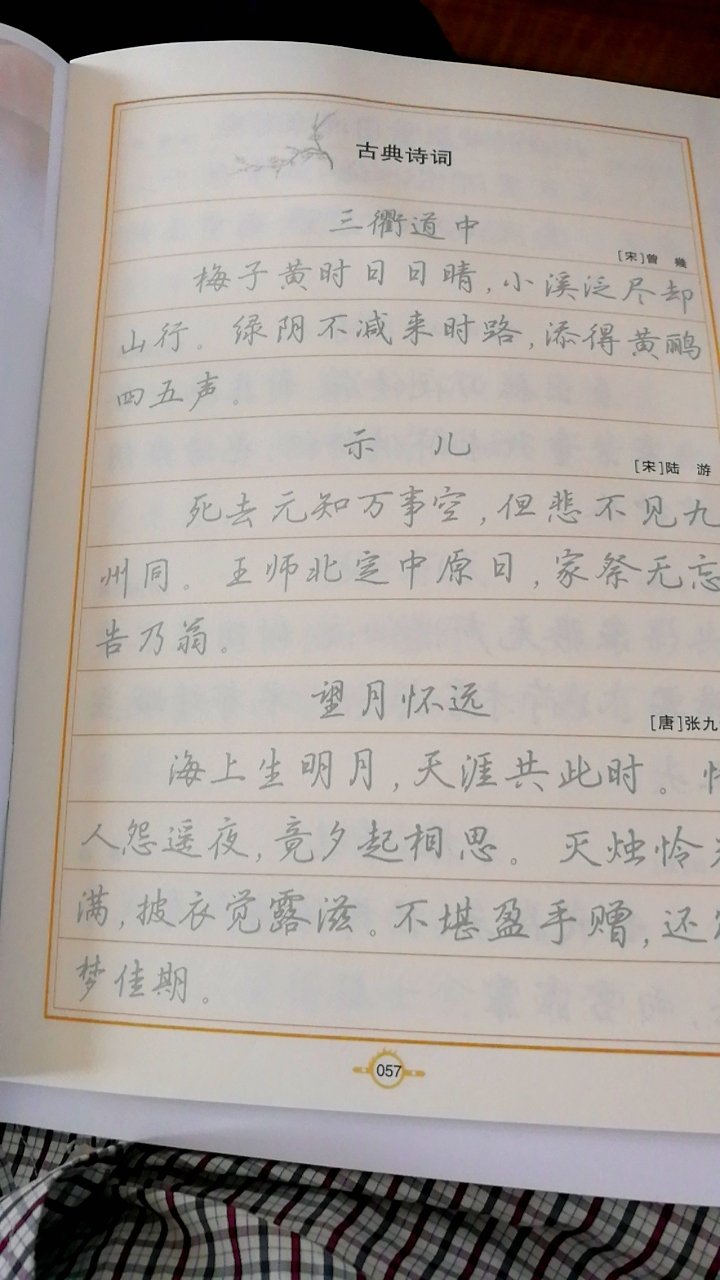 古典诗词
三衢道中
[宋]曾 幾
梅子黄时日日晴,小溪泛尽却
山行。绿阴不减来时路,添得黄鹂
四五声。
示 儿
[宋]陆 游
死去元知万事空,但悲不见九
州同。王师北定中原日,家祭无忘
告乃翁。
望月怀远
[唐]张九
海上生明月,天涯共此时。
人怨遥夜,竟夕起相思。灭烛怜
满,披衣觉露滋。不堪盈手赠,还
梦佳期。
057